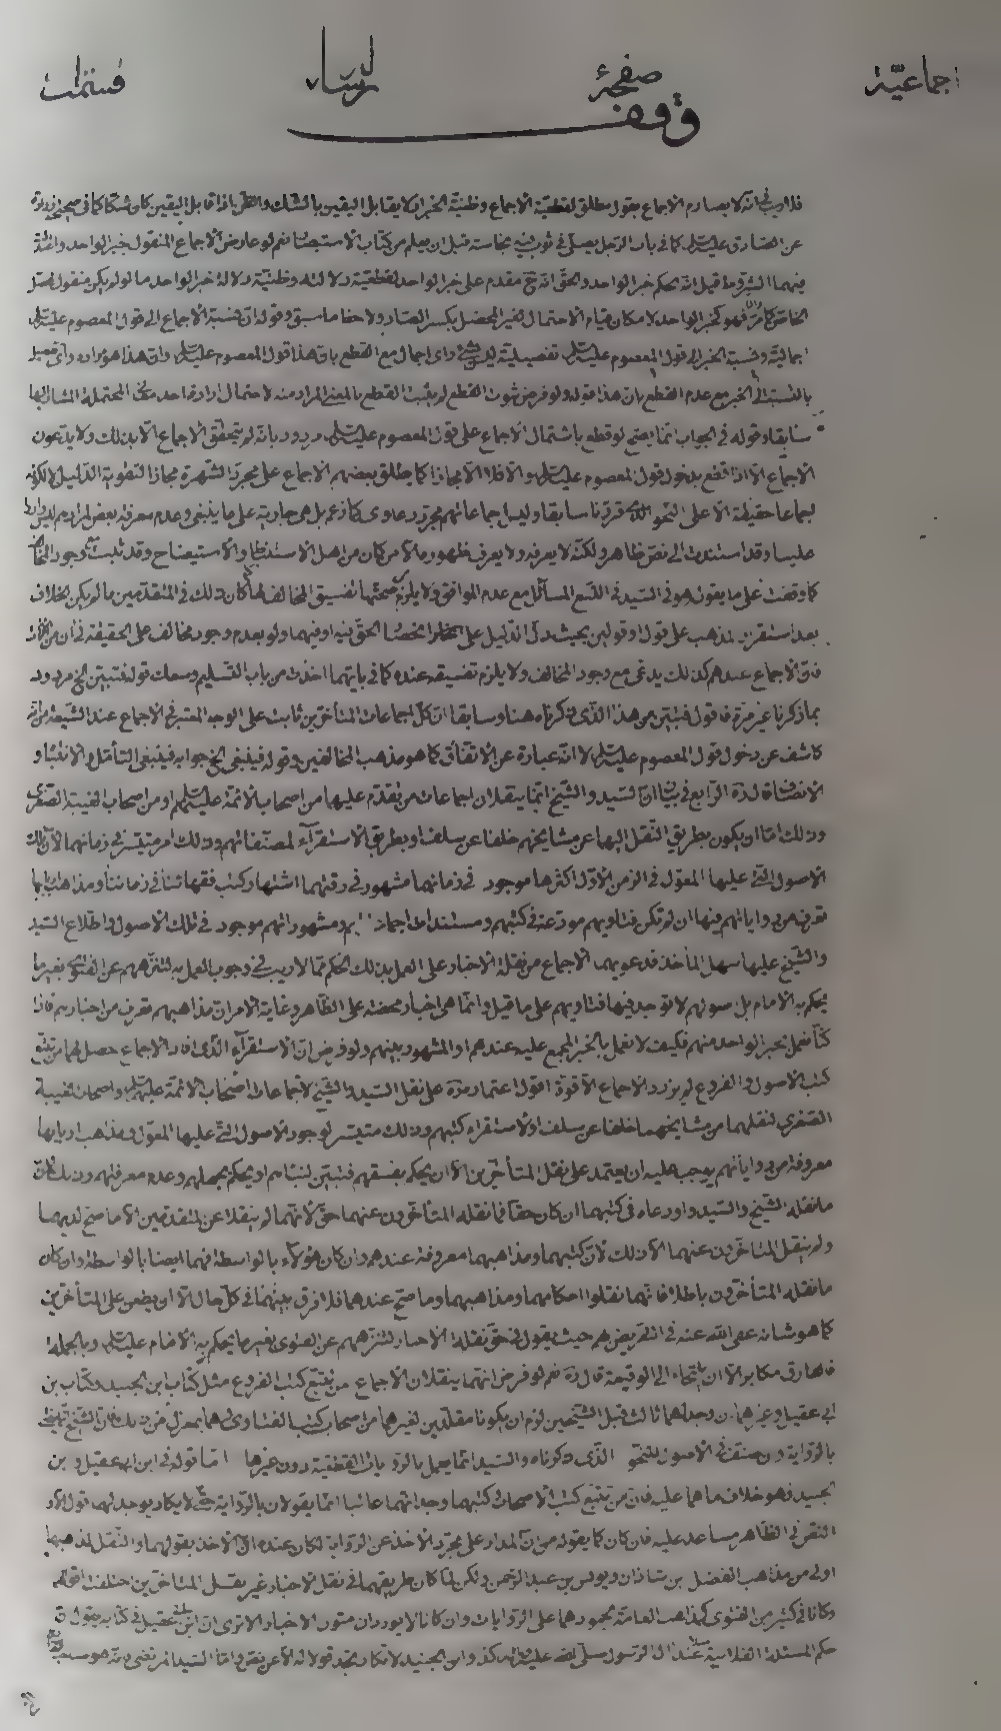 اجماعيّة صفحة الرسالة
وقف
فلا ريب في انه لا يصادم الاجماع بقول مطلق لقطعيّة الاجماع وظنيّة الخبر اذ لا يقابل اليقين بالشك والظن اذا قابل اليقين كان شكا كما في صحيح زرارة
عن الصادق عليه السلام كما في باب الرجل يصلى في ثوب فيه نجاسة قبل ان يعلم من كتاب الاستبصار نعم لو عارض الاجماع المنقول خبر الواحد
فيهما الشروط قيل انه بحكم خبر الواحد والحق انه مقدم على خبر الواحد لقطعية دلالته وظنية دلالة خبر الواحد ما لو لم يكن منقول
الخاص فهو كخبر الواحد لامكان قيام الاحتمال لغير المحصل بكسر الصاد ولاحظ ما سبق وقوله ان نسبة الاجماع الى قول المعصوم عليه السلام
اجمالية ونسبة الخبر الى قول المعصوم عليه السلام تفصيلية واى اجمال مع القطع بان هذا قول المعصوم عليه السلام وان هذا هو مراده واى تفصيل
بالنسبة الى الخبر مع عدم القطع بان هذا قوله ولو فرض ثبوت القطع لم يثبت القطع بالمعنى المراد منه لاحتمال ارادة احد المحتملة المشار اليها
سابقا وقوله في الجواب انما يصح لو قطع باشتمال الاجماع على قول المعصوم عليه السلام مردود بانه لم يتحقق الاجماع الا بذلك ولا يدعون
الاجماع الا اذا قطع بدخول قول المعصوم عليه السلام والا فلا الا مجازا كما يطلق بعضهم الاجماع على مجرد الشهرة مجازا لتقوية الدليل لا لكونه
اجماعا حقيقة الا على النحو الذى قررنا سابقا وليس اجماعاتهم مجرد دعاوى كما زعم بل هى جارية على ما ينبغى وعدم معرفة بعض مرادهم ليس واردا
عليها وقد استندت الى نص ظاهر ولكنه لا يعرفه ولا يعرف ظهوره الا من كان من اهل الاستنباط والاستيضاح وقد ثبت وجود
كما وقفت على ما يقوله هو في السيد في المسائل مع عدم الموافق ولا يلزم صحتها تفسيق المخالف كان ذلك في المتقدمين ما لم يكن الخلاف
بعد استقرار المذهب على قول او قولين بحيث دل الدليل على انحصار الحق فيه او فيهما ولو بعدم وجود مخالف على الحقيقة
فان الاجماع عندهم كذلك يدعى مع وجود المخالف ولا يلزم تفسيقه عنده كما في بابهما اخذت من باب التسليم وسمعت قوله فتبين الخ مردود
بما ذكرنا غير مرة فاقول فتبين من هذا الذى ذكرناه هنا وسابقا ان كل اجماعات المتأخرين ثابت على الوجه المعتبر في الاجماع عند الشيعة من انه
كاشف عن دخول قول المعصوم عليه السلام لا انه عبارة عن الاتفاق كما هو مذهب المخالفين وقوله فينبغى الخ جوابه فينبغى التأمل والانتباه و
الانصاف قال الرابع في بيان ان السيد والشيخ انما ينقلان اجماعات من تقدم عليهما من اصحاب الائمة عليهم السلام او من اصحاب الغيبة الصغرى
وذلك اما ان يكون بطريق النقل اليهما عن مشايخهم خلفا عن سلف او بطريق الاستقراء لمصنفاتهم وذلك امر متيسر في زمانهما لان تلك
الاصول التى عليها المعوّل في الزمن الاول اكثرها موجود في زمانهما مشهور في وقتهما اشتهار كتب فقهائنا في زماننا ومذاهب اربابها
تعرف من رواياتهم فيها ان لم تكن فتاويهم مودعة في كتبهم ومستند اجماعهم ومشهوراتهم موجود في تلك الاصول واطلاع السيد
والشيخ عليها سهل المأخذ فدعويهما الاجماع من نقلة الاخبار على العمل بذلك الحكم مما لا ريب في وجوب العمل به لتنزههم عن الفتوى بغير ما
يحكم به الامام بل اصولهم لا توجد فيها فتاويهم على ما قيل وانما هى اخبار محضة على الظاهر وغاية الامر ان مذاهبهم تعرف من اخبارهم فاذا
كنا نعمل بخبر الواحد منهم فكيف لا نعمل بالخبر المجمع عليه عندهم او المشهور بينهم ولو فرض ان الاستقراء الذى افاد الاجماع حصل لهما من تتبع
كتب الاصول والفروع لم يزدد الاجماع الا قوة اقول اعتماده على نقل السيد والشيخ لاجماعات اصحاب الائمة عليهم السلام واصحاب الغيبة
الصغرى لنقلهما من مشايخهما خلفا عن سلف او لاستقراء كتبهم وذلك متيسر لوجود الاصول التى عليها المعوّل ومذاهب اربابها
معروفة من رواياتهم يوجب عليه ان يعتمد على نقل المتأخرين الا ان يحكم بفسقهم فتبين لنا ام او يحكم بجهلهم وعدم معرفتهم وذلك لان
ما نقله الشيخ والسيد واودعاه في كتبهما ان كان حقا فما نقله المتأخرون عنهما حق لانهما لم ينقلا عن المتقدمين الا ما صح لديهما
ولم ينقل المتأخرون عنهما الا ذلك لان كتبهما ومذاهبهما معروفة عندهم وان كان هؤلاء بالواسطة فهما ايضا بالواسطة وان كان
ما نقله المتأخرون باطلا فانهما نقلوا احكامهما ومذاهبهما وما صح عندهما فلا فرق بينهما في كل حال الا ان يطعن على المتأخرين
كما هو شانه عفى الله عنه في التعريض بهم حيث يقول في حق نقلة الاخبار لتنزههم عن الفتوى بغير ما يحكم به الامام عليه السلام وبالجملة
فالفارق مكابر الا ان يلتجأ الى الوقيعة قال نعم لو فرض انهما ينقلان الاجماع من تتبع كتب الفروع مثل كتاب ابن الجنيد وكتاب ابن
ابى عقيل وغيرهما ان وجد لهما ثالث قبل الشيخين لزم ان يكونا مقلدين لغيرهما من اصحاب كتب الفتاوى وهما بمعزل عن ذلك فان الشيخ
بالرواية ومن صنف في الاصول للنحو الذى ذكرناه والسيد انما يعمل بالروايات القطعية دون غيرها اما قوله في ابن ابى عقيل وابن
الجنيد فهو خلاف ما هما عليه فان من تتبع كتب الاصحاب وكتبهما وجد انهما غالبا انما يقولان بالرواية حتى لا يكاد يوجد لهما قول الا و
النص في الظاهر مساعد عليه فان كان كما يقوله من ان المدار على مجرد الاخذ عن الرواية لكان عنده ان الاخذ بقولهما والنقل لمذهبهما
اولى من مذاهب الفضل بن شاذان ويونس بن عبد الرحمن ولكن لما كان طريقهما في نقل الاخبار غير نقل المتاخرين
وكانا في كثير من الفتوى كمذاهب العامة بجمودهما على الروايات وان كانا لا يوردان متون الاخبار الا ترى ان ابن ابى عقيل في كتابه يقول في
حكم المسئلة الفلانية عند آل الرسول صلى الله عليه وآله كذا وابن الجنيد لا تكاد تجد قولا له الا عن نص واما السيد المرتضى فانه هو